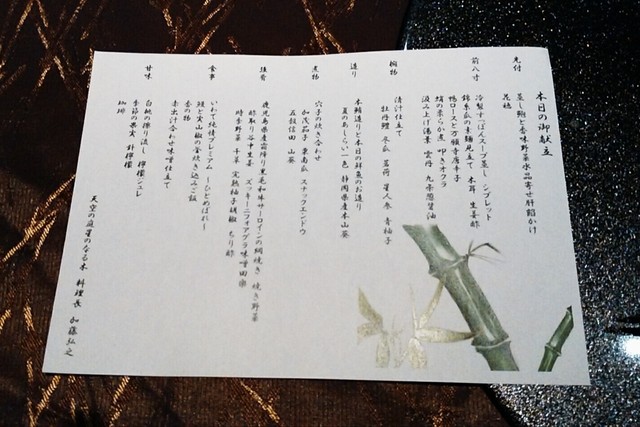 本日の御献立
先付
蒸し鮑と香味野菜水晶寄せ肝餡かけ
花穂
前八寸
冷製すっぽんスープ蒸し シブレット
錦糸瓜の素麺見立て 木耳 生姜酢
鴨ロースと万願寺唐辛子
蛸の柔らか煮 叩きオクラ
汲み上げ湯葉 雲丹 九条葱醤油
椀物
清汁仕立て
牡丹鱧 冬瓜 茗荷 星人参 青柚子
造り
本鮪造りと本日の鮮魚のお造り
夏のあしらい一色 静岡県産本山葵
煮物
穴子の炊き合わせ
加茂茄子 東南瓜 スナックエンドウ
五穀信田 山葵
強肴
鹿児島県産霜降り黒毛和牛サーロインの網焼き 焼き野菜
ズッキーニフォアグラ味噌田楽
時季野菜 千草 完熟柚子胡椒 ちり酢
食事
いわて純情プレミアム ～ひとめぼれ～
鰻と実山椒の釜炊き込みご飯
香の物
赤出汁合わせ味噌仕立て
甘味
白桃の擦り流し 檸檬ジュレ
季節の果実 針檸檬
珈琲
天空の庭星のなる木 料理長 加藤弘之